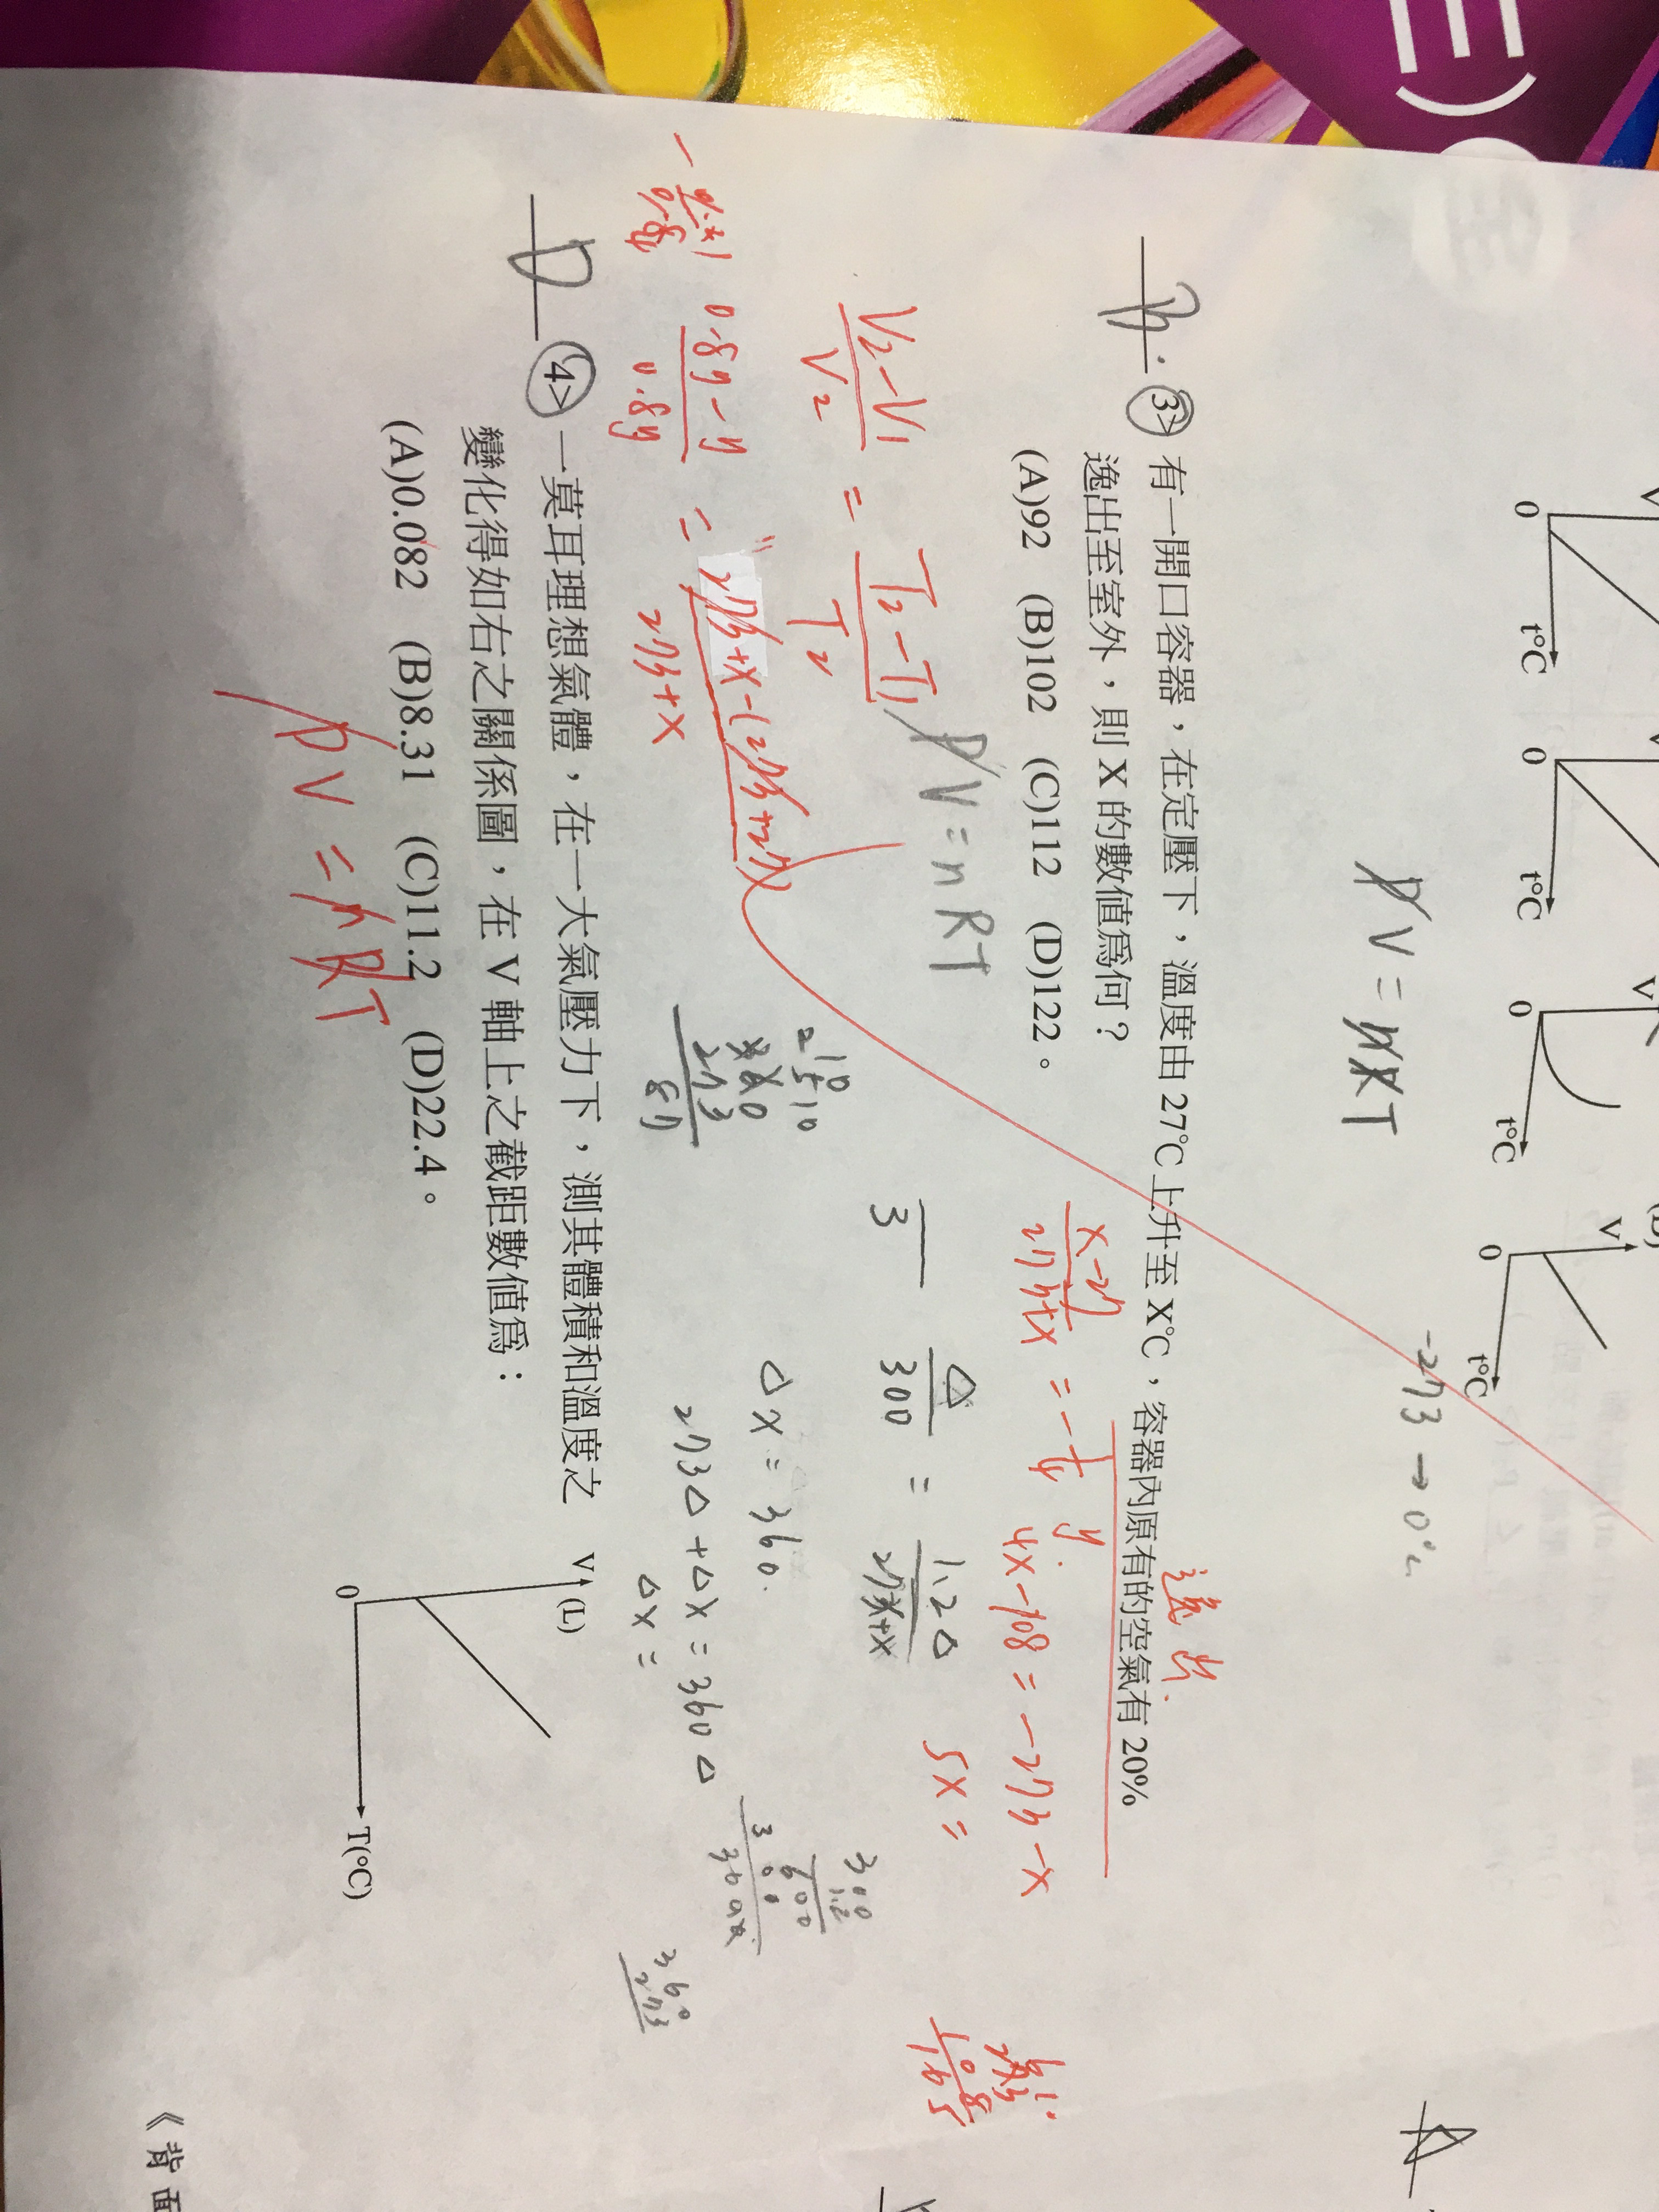 三)
V
0
t°C
V
0
t°C
V
0
t°C
V
0
t°C
-273 → 0°c
PV = nRT
3> 有一開口容器，在定壓下，溫度由 27℃上升至 X℃，容器內原有的空氣有 20%
逸出至室外，則 X 的數值為何？
(A)92 (B)102 (C)112 (D)122。
逸出
PV = nRT
X-27
273+X
= -
y
4X-108 = -273-X
5X =
V2-V1
V2
=
T2-T1
T2
3
△
300
=
1.2△
273+X
0.8y-y
0.8y
=
273+X-(273+27)
273+X
273
87
△X = 360.
273△+△X = 360△
△X =
300
1.2
600
360
273
273
108
165
D
4> 一莫耳理想氣體，在一大氣壓力下，測其體積和溫度之
變化得如右之關係圖，在 V 軸上之截距數值為：
(A)0.082 (B)8.31 (C)11.2 (D)22.4。
V (L)
0
T(°C)
PV = nRT
《背面